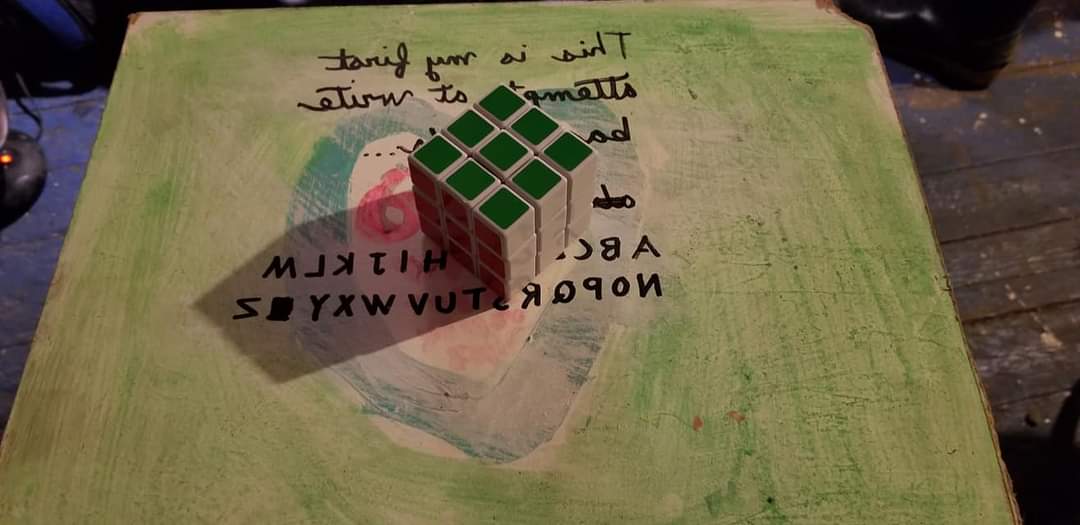 This is my first
attempt to write
ba
ABC HIJKLM
NOPQRSTUVWXY Z